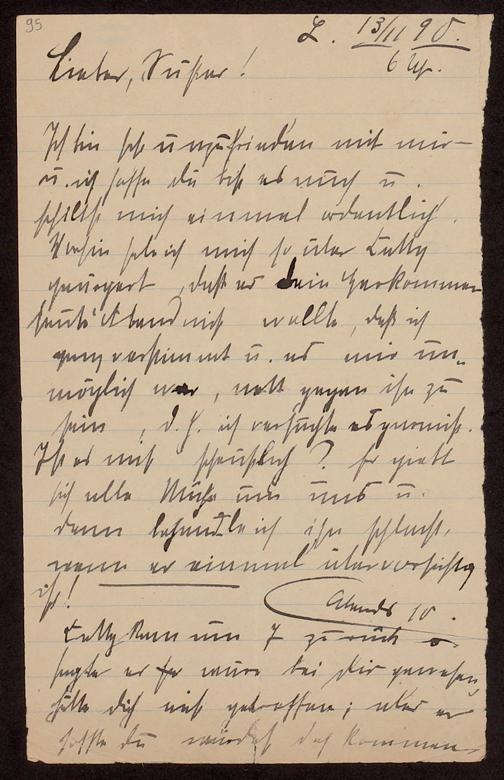 95
L. 13/11 95.
6 Uhr.
Lieber, Süßer!
Ich bin sehr unzufrieden mit mir –
u. ich hoffe du bist es auch u.
schiltst mich einmal ordentlich.
Vorhin habe ich mich so über
geärgert, daß er dein Herkommen
heute Abend nicht wollte, daß ich
ganz verstimmt u. es mir un-
möglich war, nett gegen ihn zu
sein, d.h. ich versuchte es garnicht.
Ist es nicht scheußlich? Er giebt
sich alle Mühe um uns u.
dann behandle ich ihn schlecht,
wenn er einmal übervorsichtig
ist!
Abends 10.
kam um 7 zurück
sagte er wäre bei dir gewesen,
hätte dich nicht getroffen; aber er
hoffte du würdest doch kommen –